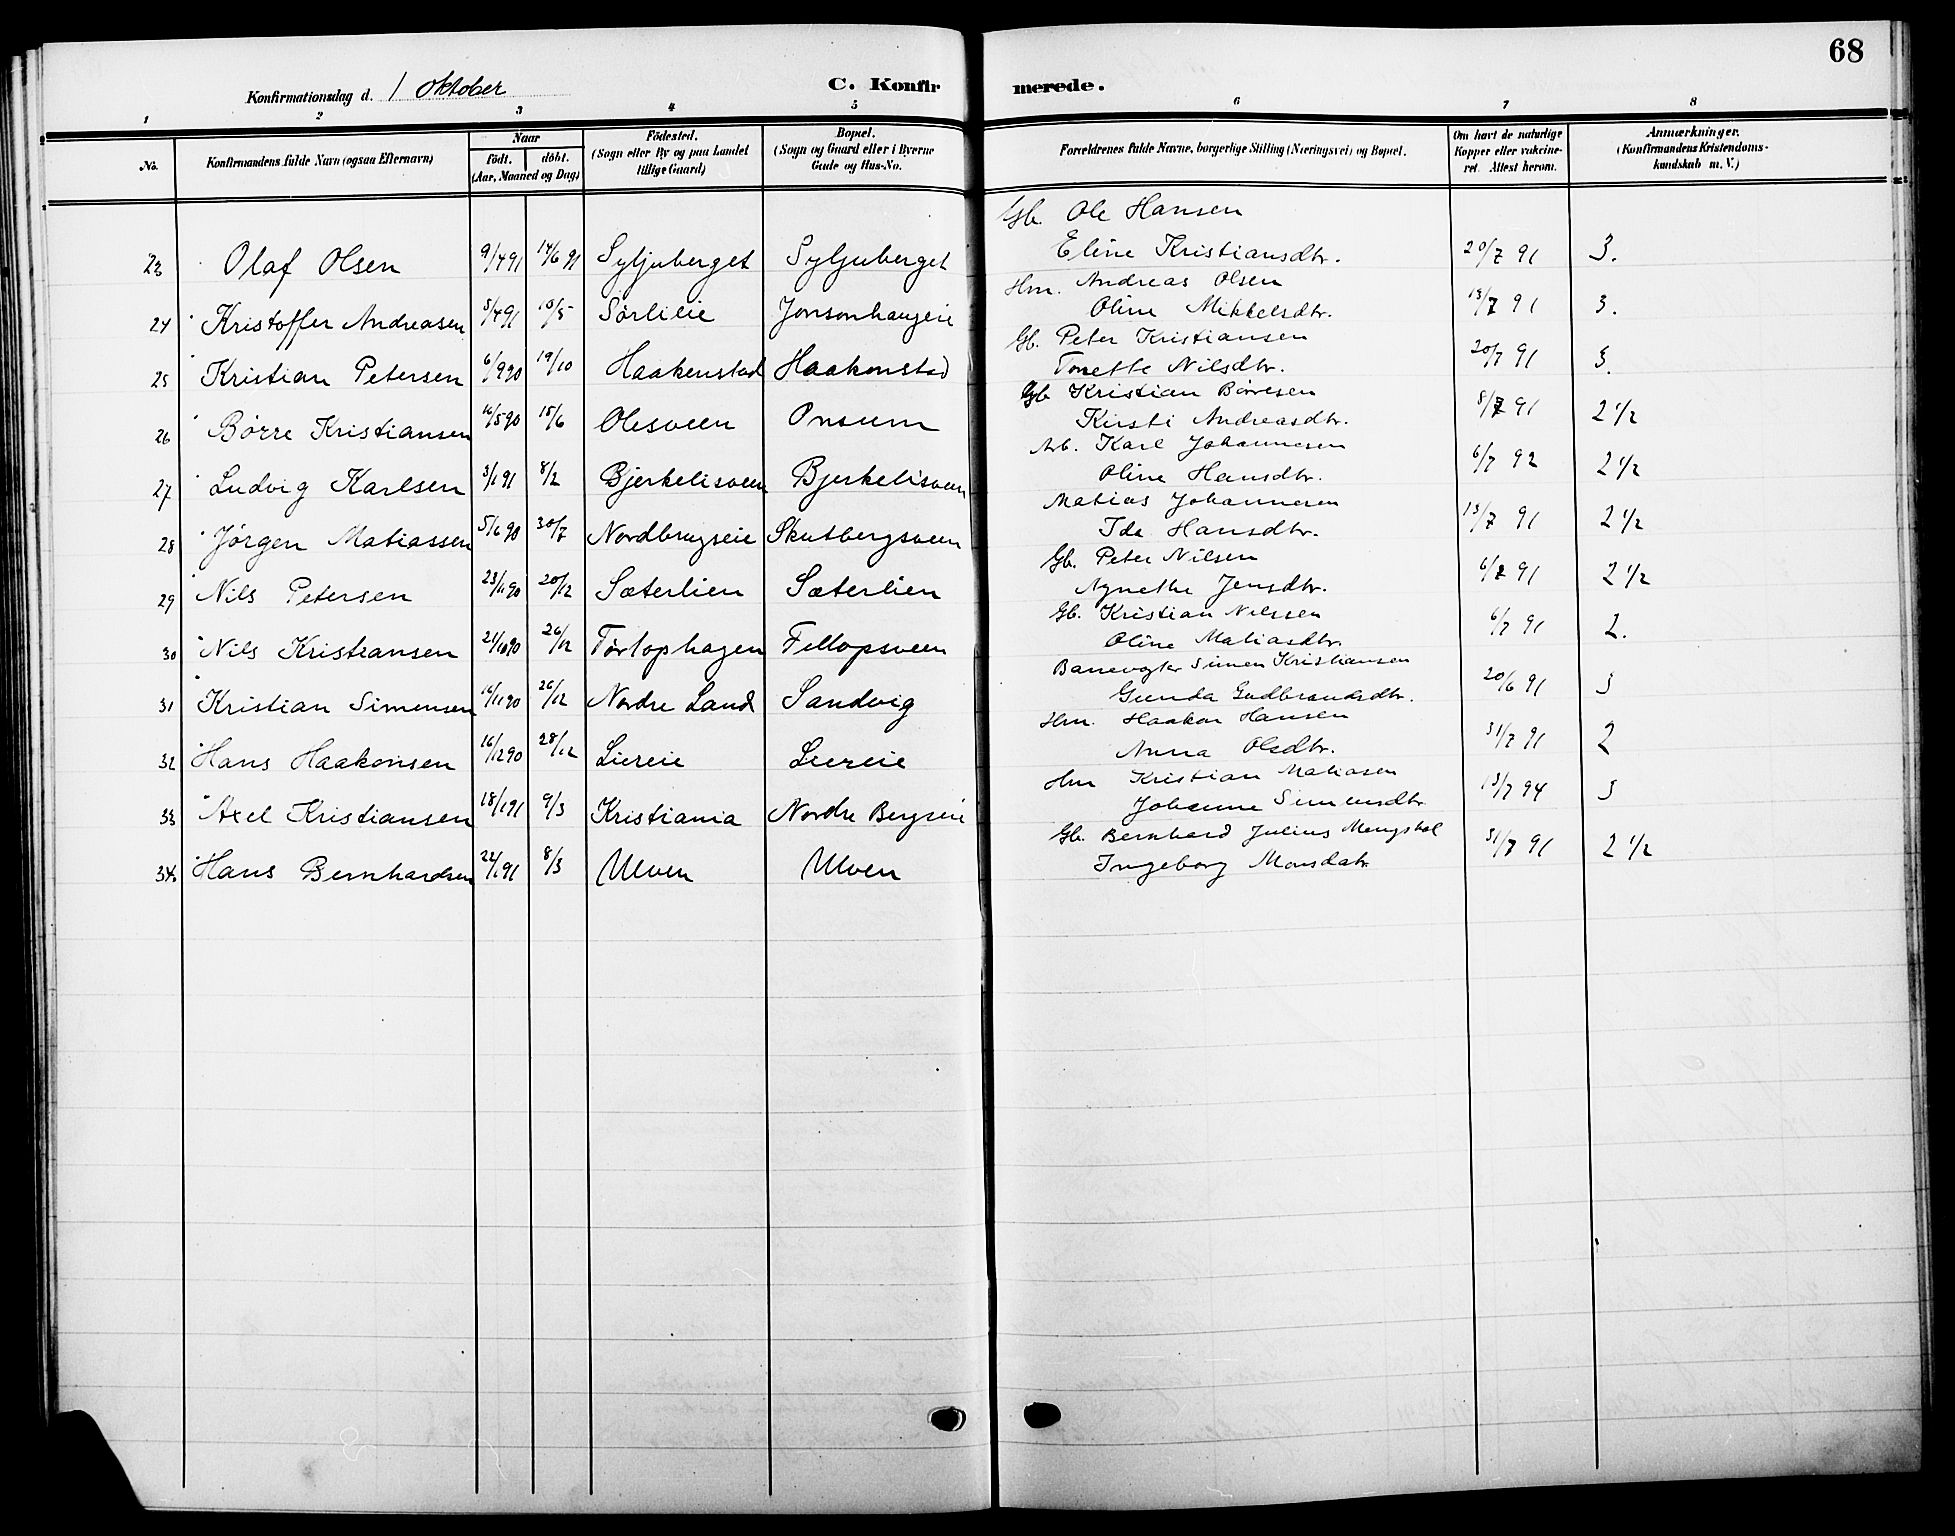 68
Konfirmationsdag d. 1 Oktober
C. Konfirmerede.
1 2 3 4 5 6 7 8
No.
Konfirmandens fulde Navn (ogsaa Efternavn)
Naar
födt. döbt.
(Aar, Maaned og Dag)
Födested.
(Sogn eller By og paa Landet
tillige Gaard)
Bopæl.
(Sogn og Gaard eller i Byerne
Gade og Hus-No.
Forældrenes fulde Navne, borgerlige Stilling (Næringsvei) og Bopæl.
Om havt de naturlige
Kopper eller vakcine-
ret. Attest herom.
Anmærkninger.
(Konfirmandens Kristendoms-
kundskab m. V.)
Gb. Ole Hansen
23 Olaf Olsen 9/4 91 14/6 91 Syljuberget Syljuberget Eline Kristiansdtr. 20/7 91 3.
Hm. Andreas Olsen
24 Kristoffer Andreasen 5/4 91 10/5 Sørlieie Jonsonhaugeie Oline Mikkelsdtr. 13/7 91 3.
Gb. Peter Kristiansen
25 Kristian Petersen 6/9 90 19/10 Haakenstad Haakonstad Tonette Nilsdtr. 20/7 91 3.
Gb Kristian Børresen
26 Børre Kristiansen 16/5 90 15/6 Olesveen Onsum Kirsti Andreasdtr. 8/7 91 2 1/2
Arb. Karl Johannesen
27 Ludvig Karlsen 3/1 91 8/2 Bjerkelisveen Bjerkelisveen Oline Hansdtr. 6/7 92 2 1/2
Matias Johannesen
28 Jørgen Matiassen 5/6 90 30/7 Nordbrugseie Skutbergsveen Ida Hansdtr. 13/7 91 2 1/2
Gb. Peter Nilsen
29 Nils Petersen 23/11 90 20/12 Sæterlien Sæterlien Agnethe Jensdtr. 6/7 91 2 1/2
Gb. Kristian Nilssen
30 Nils Kristiansen 21/10 90 26/12 Tørtophagen Fellopsveen Oline Matiasdtr. 6/7 91 2.
Banevogter Simen Kristiansen
31 Kristian Simensen 16/11 90 26/12 Nordre Land Sandvig Gunda Gudbrandsdtr. 20/6 91 3
Hm. Haakon Hansen
32 Hans Haakonsen 16/12 90 28/12 Liereie Liereie Anna Olsdtr. 31/7 91 2
Hm Kristian Matiasen
33 Axel Kristiansen 18/1 91 9/3 Kristiania Nordre Bergseie Johanne Simensdtr 13/7 94 3
Gb. Bernhard Julius Mengshol
34 Hans Bernhardsen 22/1 91 8/3 Ulven Ulven Ingeborg Monsdatr 31/7 91 2 1/2